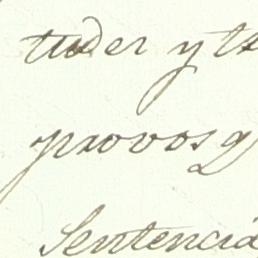 tuder y te
provosq
Sentencia